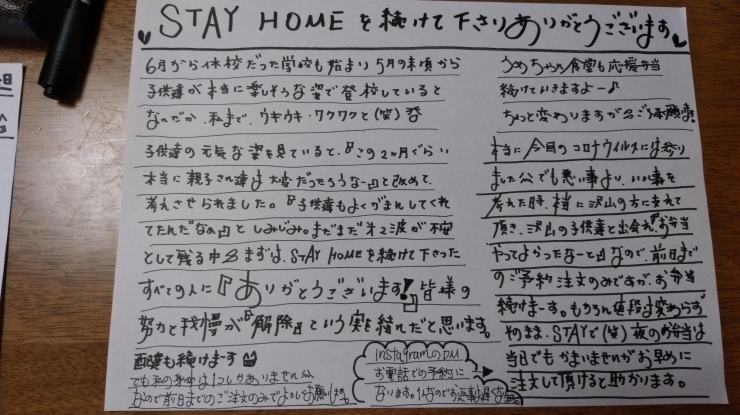 STAY HOMEを続けて下さりありがとうございます
6月から休校だった学校も始まり 5月の末頃から
子供達が本当に楽しそうな姿で登校していると
なんだか、私まで、ウキウキ・ワクワクと(笑)
子供達の元気な姿を見ていると、『この2ヶ月ぐらい
本当に親子さん達は大変だったろうなー』と改めて、
考えさせられました。『子供達もよくがまんしてくれ
てたんだなぁ』としみじみ。まだまだ第2波が不安
として残る中 まずは、STAY HOMEを続けて下さった
すべての人に『ありがとうございます!』皆様の
努力と我慢が『解除』という実を結んだと思います。
配達も続けまーす
でも私の身体は1つしかありません
なので前日までのご注文のみでよろしくお願いします。
InstagramのDM
お電話での予約に
なります。1人なのでお返事遅くなる
うめちゃん食堂も応援弁当
続けていきますよー♪
ちょっと変わりますが ご了承願います!
本当に今回のコロナウイルスには参り
ましたが でも悪い事より、いい事を
考えた時、本当に沢山の方に支えて
頂き、沢山の子供達と出会え『お弁当
やってよかったなー』と なので、前日まで
のご予約注文のみですが、お弁当
続けまーす。もちろん値段は変わらず
そのまま、STAYで(笑) 夜のお弁当は
当日でもかまいませんがお早めに
注文して頂けると助かります。